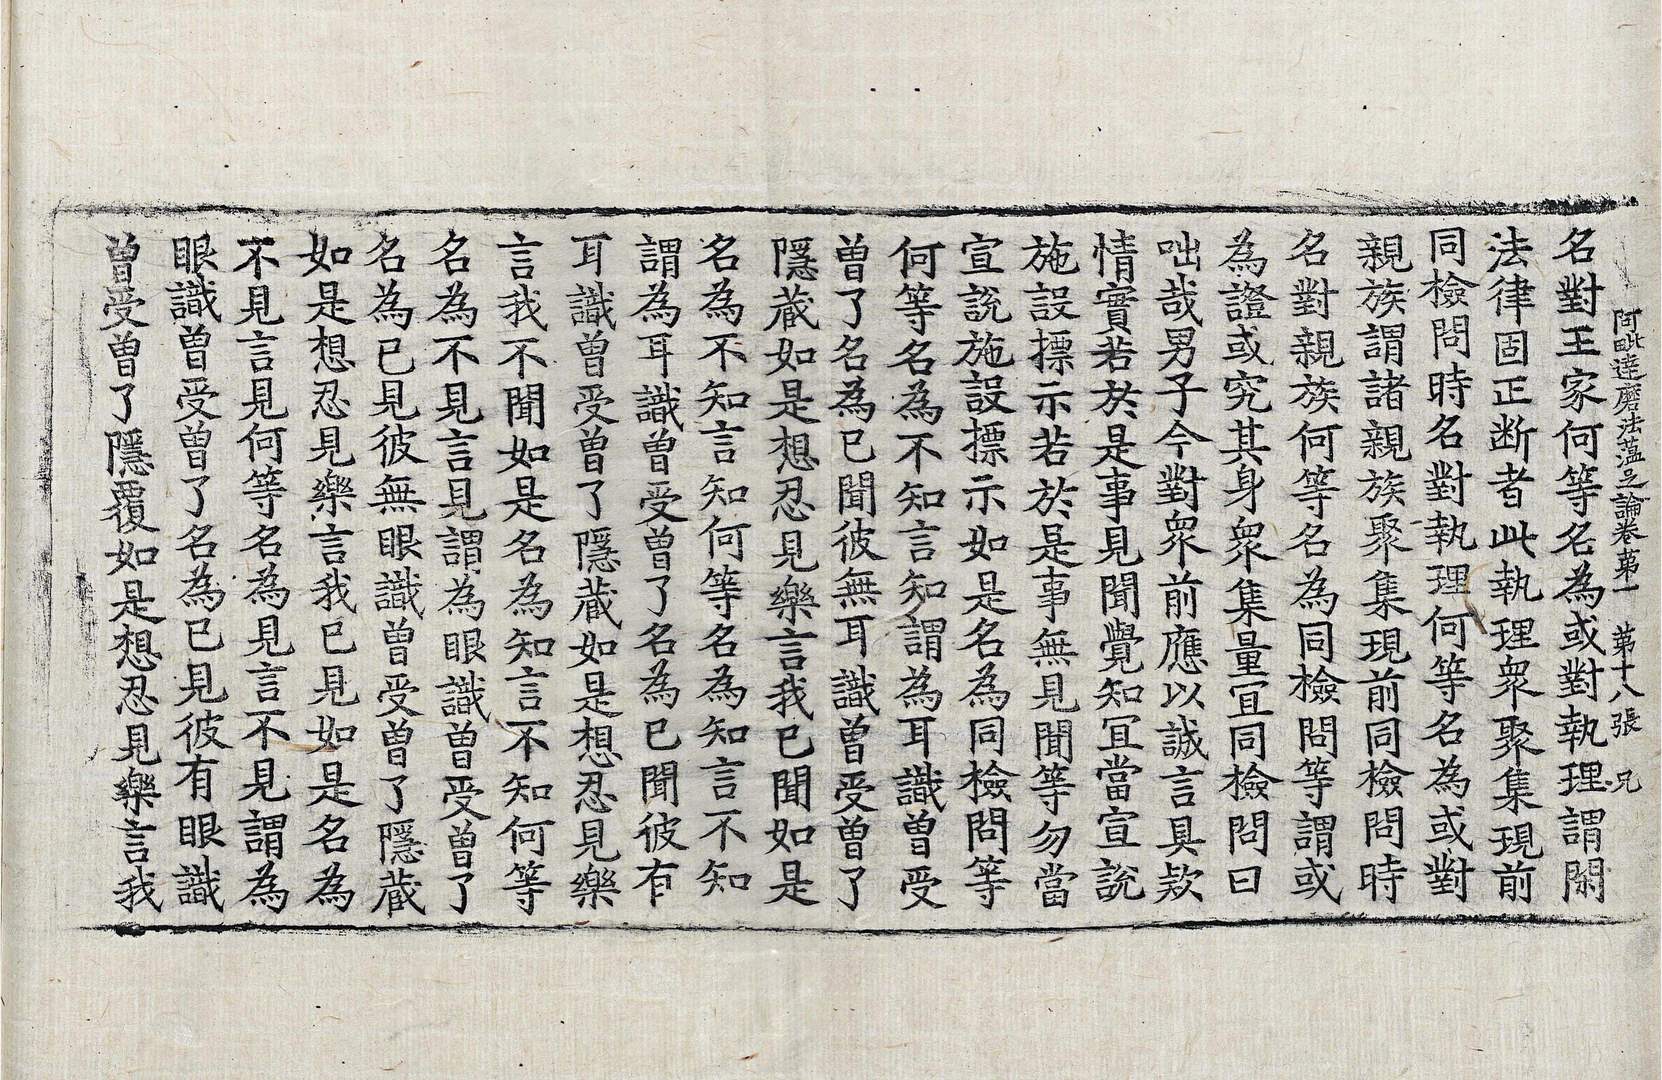 阿毗達磨法蘊足論卷第一 第十八張 兄
名對王家何等名為或對執理謂閑
法律固正断者此執理衆聚集現前
同檢問時名對執理何等名為或對
親族謂諸親族聚集現前同檢問時
名對親族何等名為同檢問等謂或
為證或究其身衆集量宜同檢問曰
咄哉男子今對衆前應以誠言具欵
情實若於是事見聞覺知冝當宣說
施設摽示若於是事無見聞等勿當
宣說施設摽示如是名為同檢問等
何等名為不知言知謂為耳識曾受
曾了名為已聞彼無耳識曾受曾了
隱藏如是想忍見樂言我已聞如是
名為不知言知何等名為知言不知
謂為耳識曾受曾了名為已聞彼有
耳識曾受曾了隱藏如是想忍見樂
言我不聞如是名為知言不知何等
名為不見言見謂為眼識曾受曾了
名為已見彼無眼識曾受曾了隱藏
如是想忍見樂言我已見如是名為
不見言見何等名為見言不見謂為
眼識曾受曾了名為已見彼有眼識
曾受曾了隱覆如是想忍見樂言我